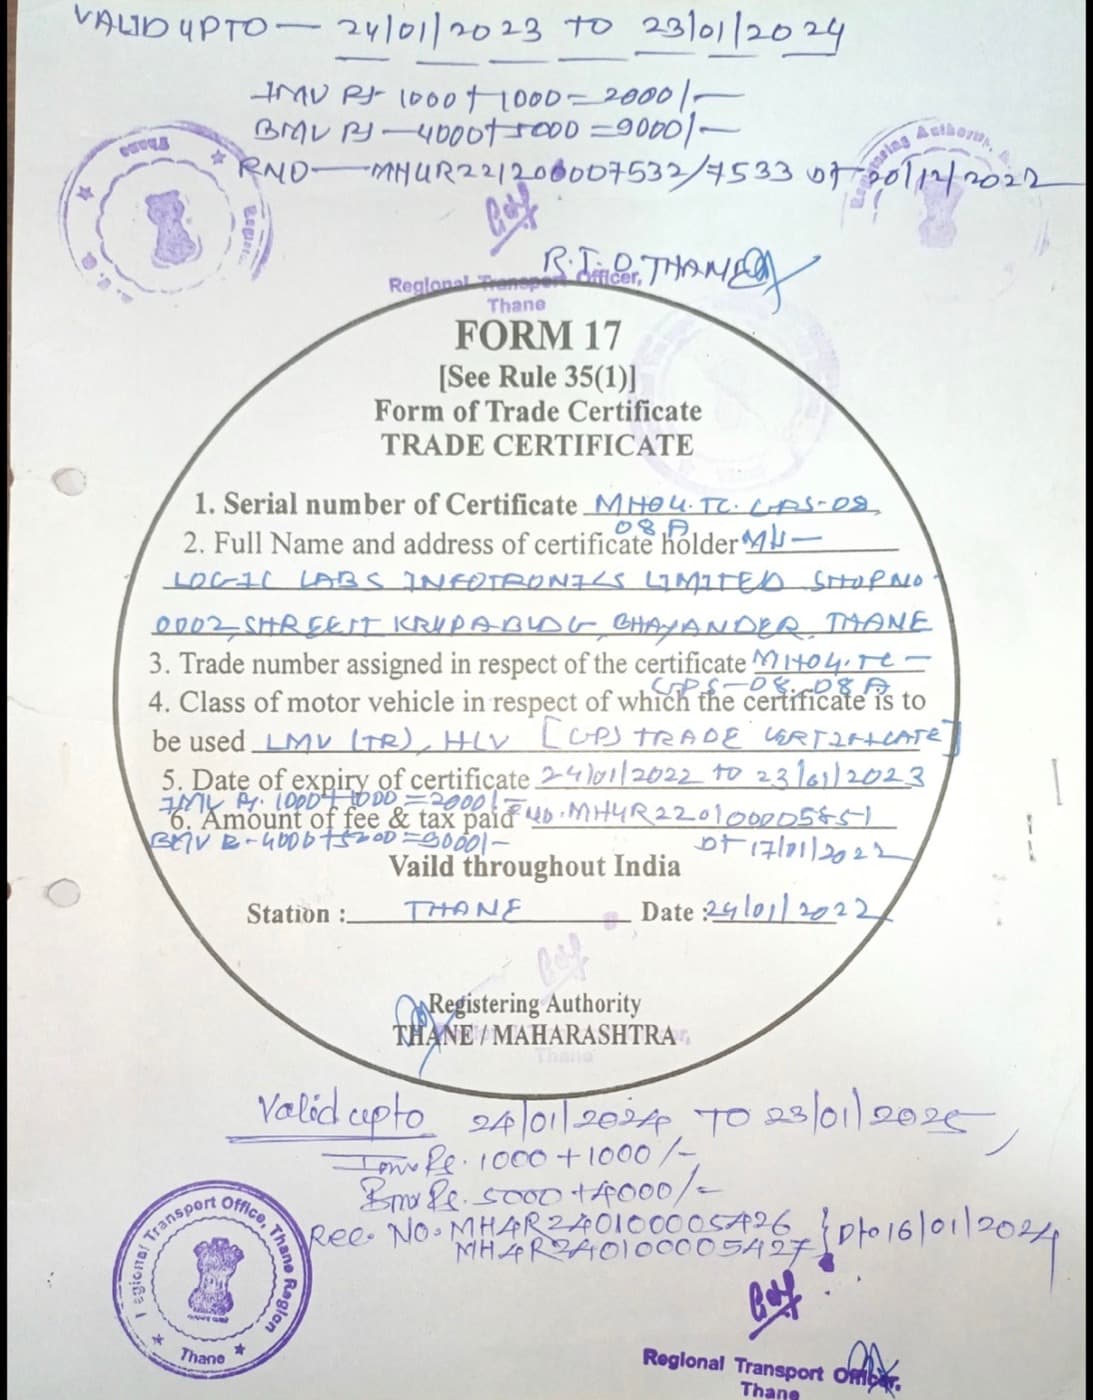 VALID UPTO — 24/01/2023 TO 23/01/2024
IMV Rs 1000+1000=2000/-
BMV Rs — 4000+5000=9000/-
RNO — MH4R221200007532/7533 DT 20/12/2022
R.T.O THANE
Regional Transport Officer,
Thane
FORM 17
[See Rule 35(1)]
Form of Trade Certificate
TRADE CERTIFICATE
1. Serial number of Certificate MH04.TC.GPS-08,
08A
2. Full Name and address of certificate holder M/s —
LOGIC LABS INFOTRONICS LIMITED SHOP NO
0002, SHREEJI KRUPA BLDG, BHAYANDER, THANE
3. Trade number assigned in respect of the certificate MH04.TC —
GPS-08, 08A
4. Class of motor vehicle in respect of which the certificate is to
be used LMV (TR), HLV [GPS TRADE CERTIFICATE]
5. Date of expiry of certificate 24/01/2022 TO 23/01/2023
IMV Rs. 1000+1000=2000/-
6. Amount of fee & tax paid MH4R220100005851
BMV R-4000+5000=9000/- DT 17/01/2022
Vaild throughout India
Station : THANE Date : 24/01/2022
Registering Authority
THANE / MAHARASHTRA
Thane
Valid upto 24/01/2024 TO 23/01/2025
Imv Rs. 1000+1000/-
Bmv Rs. 5000+4000/-
Rec. No. MH4R240100005426
MH4R240100005427 } Dto 16/01/2024
Regional Transport Office, Thane Region
Thane
Regional Transport Officer,
Thane